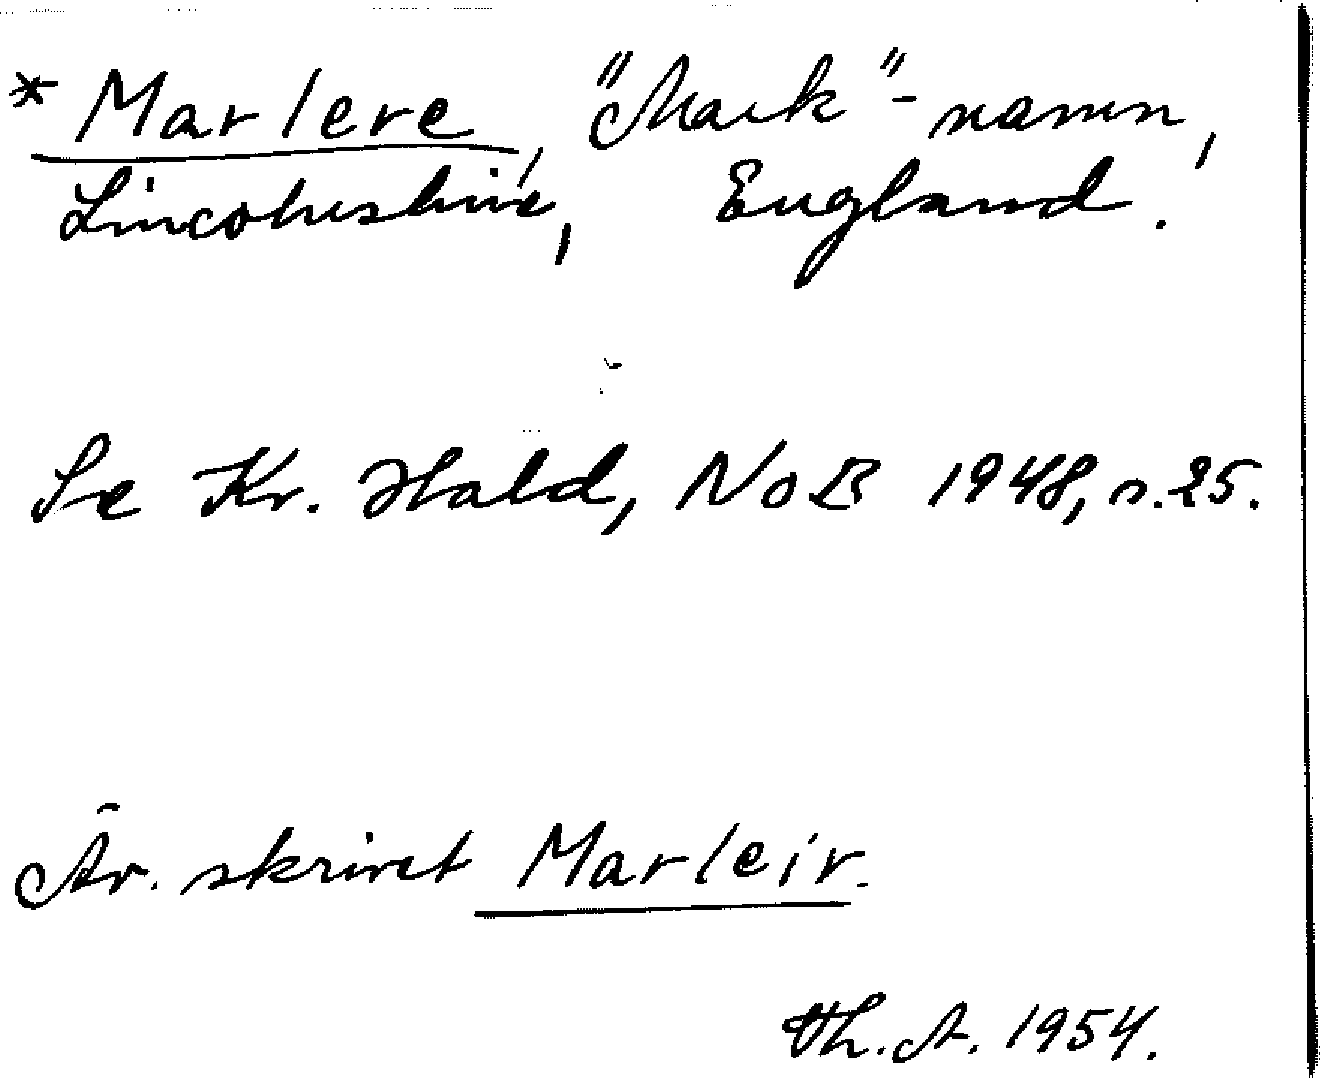 * Marlere, "Mark"-namn,
Lincolnshire, England.
Se Kr. Hald, NoB 1948, s. 25.
Är skrivet Marleir.
Th. A. 1954.